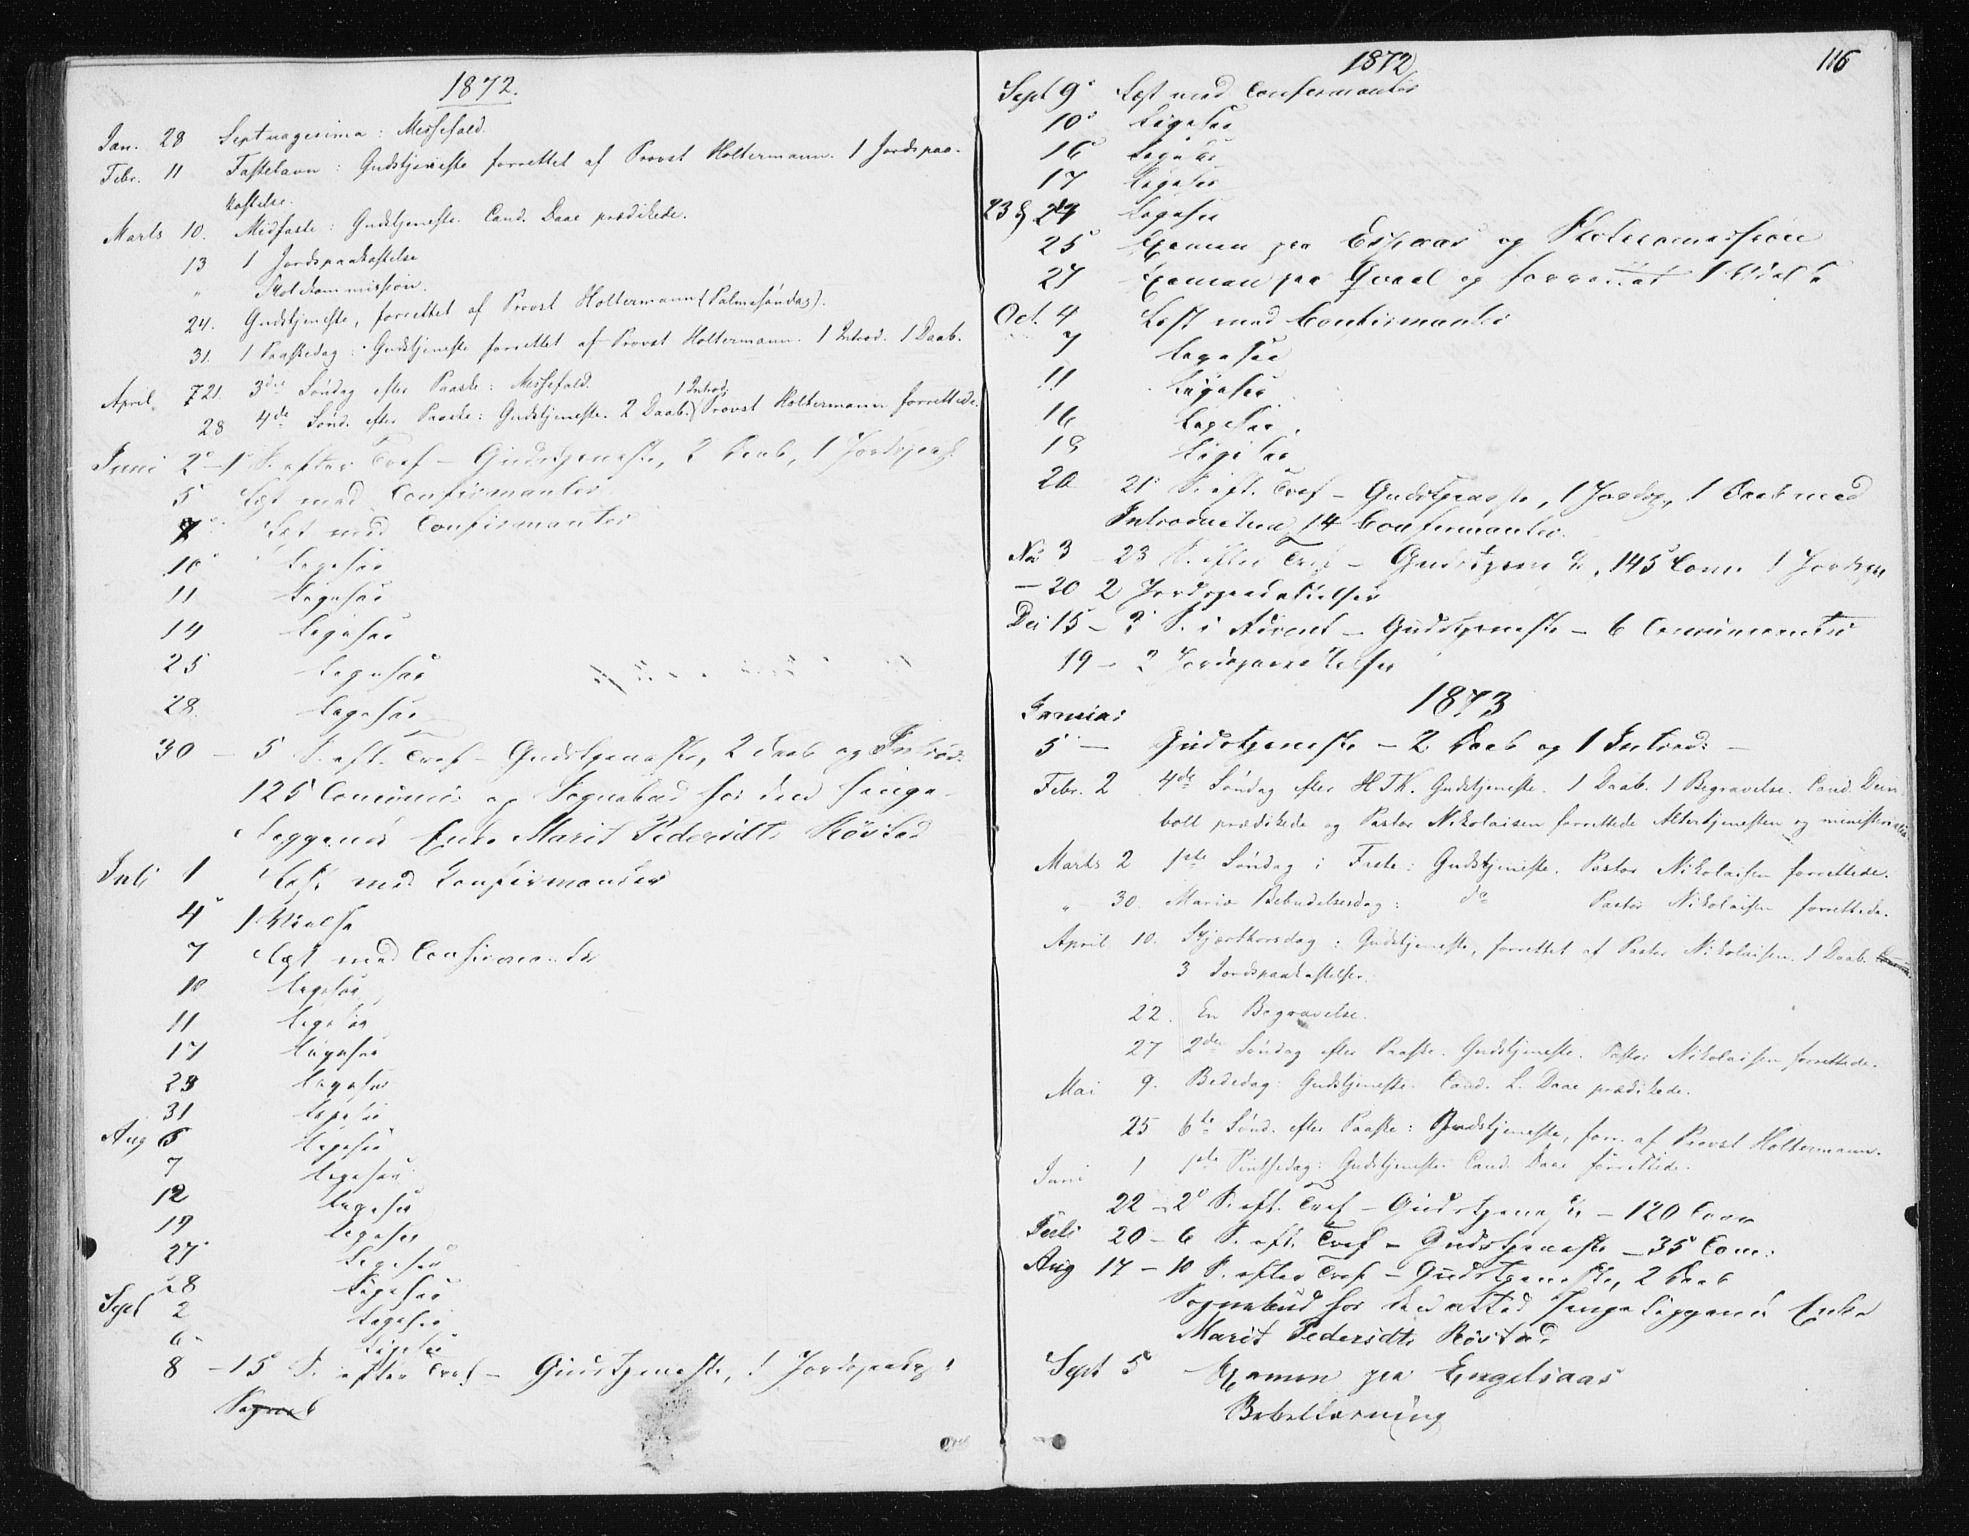 1872.
Jan. 28 Septuagesima: Messefald.
Febr. 11 Fastelavn: Gudstjeneste forrettet af Provst Holtermann. 1 Jordspaa-
kastelse.
Marts 10. Midfaste: Gudstjeneste. Cand. Daae prædikede.
13 1 Jordspaakastelse
" Skolekommission.
24. Gudstjeneste, forrettet af Provst Holtermann (Palmesøndag).
31. 1 Paaskedag: Gudstjeneste forrettet af Provst Holtermann. 1 Introd. 1 Daab.
April 21. 3die Søndag efter Paaske: Messefald.
28 4de Sønd. efter Paaske: Gudstjeneste. 2 Daab. 1 Introd. Provst Holtermann forrettede.
Juni 2 - 1 S. efter Tref - Gudstjeneste, 2 Daab, 1 Jordspaak.
5 Læst med Confirmanter
7 Læst med Confirmanter
10 Ligesaa
11 Ligesaa
14 Ligesaa
25 Ligesaa
28. Ligesaa
30 - 5 S. eft. Tref - Gudstjeneste, 2 Daab og Introd:
125 Communi og Sognebud for den senge-
liggende Enke Marit Pedersdtr Røstad
Juli 1 Læst med Confirmanter
4
7 Læst med Confirmanter
10 Ligesaa
11 Ligesaa
17 Ligesaa
23 Ligesaa
31 Ligesaa
Aug 5 Ligesaa
7 Ligesaa
12 Ligesaa
19 Ligesaa
27 Ligesaa
28 Ligesaa
Sept 2 Ligesaa
6 Ligesaa
8 - 15 S. efter Tref - Gudstjeneste, 1 Jordspaak
1872
116
Sept 9 Læst med Confirmanter
10 Ligesaa
16 Ligesaa
17 Ligesaa
23 & 24 Ligesaa
25 Examen paa Esphaas og Skolecommission
27 Examen paa Qvaal og
Oct. 4 Læst med Confirmanter
7 Ligesaa
11 Ligesaa
16 Ligesaa
18 Ligesaa
20 21 S. eft. Tref - Gudstjeneste, 1 Jordsp, 1 Daab med
Introduction, 14 Confirmanter.
No 3 - 23 S. efter Tref - Gudstjeneste, 145 Comm 1 Jordsp
- 20 2 Jordspaakastelser
Dec 15 - 3 S. i Advent - Gudstjeneste - 6 Communicanter
19 - 2 Jordspaakastelser
1873
Januar
5 - Gudstjeneste - 2 Daab og 1 Introd: -
Febr. 2 4de Søndag efter H3K. Gudstjeneste. 1 Daab. 1 Begravelse. Cand. Dein-
boll prædikede og Pastor Nikolaisen forrettede Altertjenesten og ministerialia
Marts 2 1ste Søndag i Faste: Gudstjeneste. Pastor Nikolaisen forrettede.
" 30. Mariæ Bebudelsesdag: do Pastor Nikolaisen forrettede.
April 10. Skjærthorsdag: Gudstjeneste, forrettet af Pastor Nikolaisen. 1 Daab.
3 Jordspaakastelser.
22. En Begravelse.
27 2den Søndag efter Paaske. Gudstjeneste. Pastor Nikolaisen forrettede.
Mai 9. Bededag: Gudstjeneste. Cand. L. Daae prædikede.
25 6te Sønd. efter Paaske: Gudstjeneste, forr. af Provst Holtermann.
Juni 1 1ste Pintsedag: Gudstjeneste: Cand. Daae forrettede.
22 - 2 S. eft. Tref - Gudstjeneste - 120 Com
Juli 20 - 6 S. eft. Tref - Gudstjeneste - 35 Com:
Aug 17 - 10 S. efter Tref - Gudstjeneste, 2 Daab
Sognebud for den altid sengeliggende Enke
Marit Pedersdtr Røstad
Sept 5 Examen paa Engelsaas
Babellærning